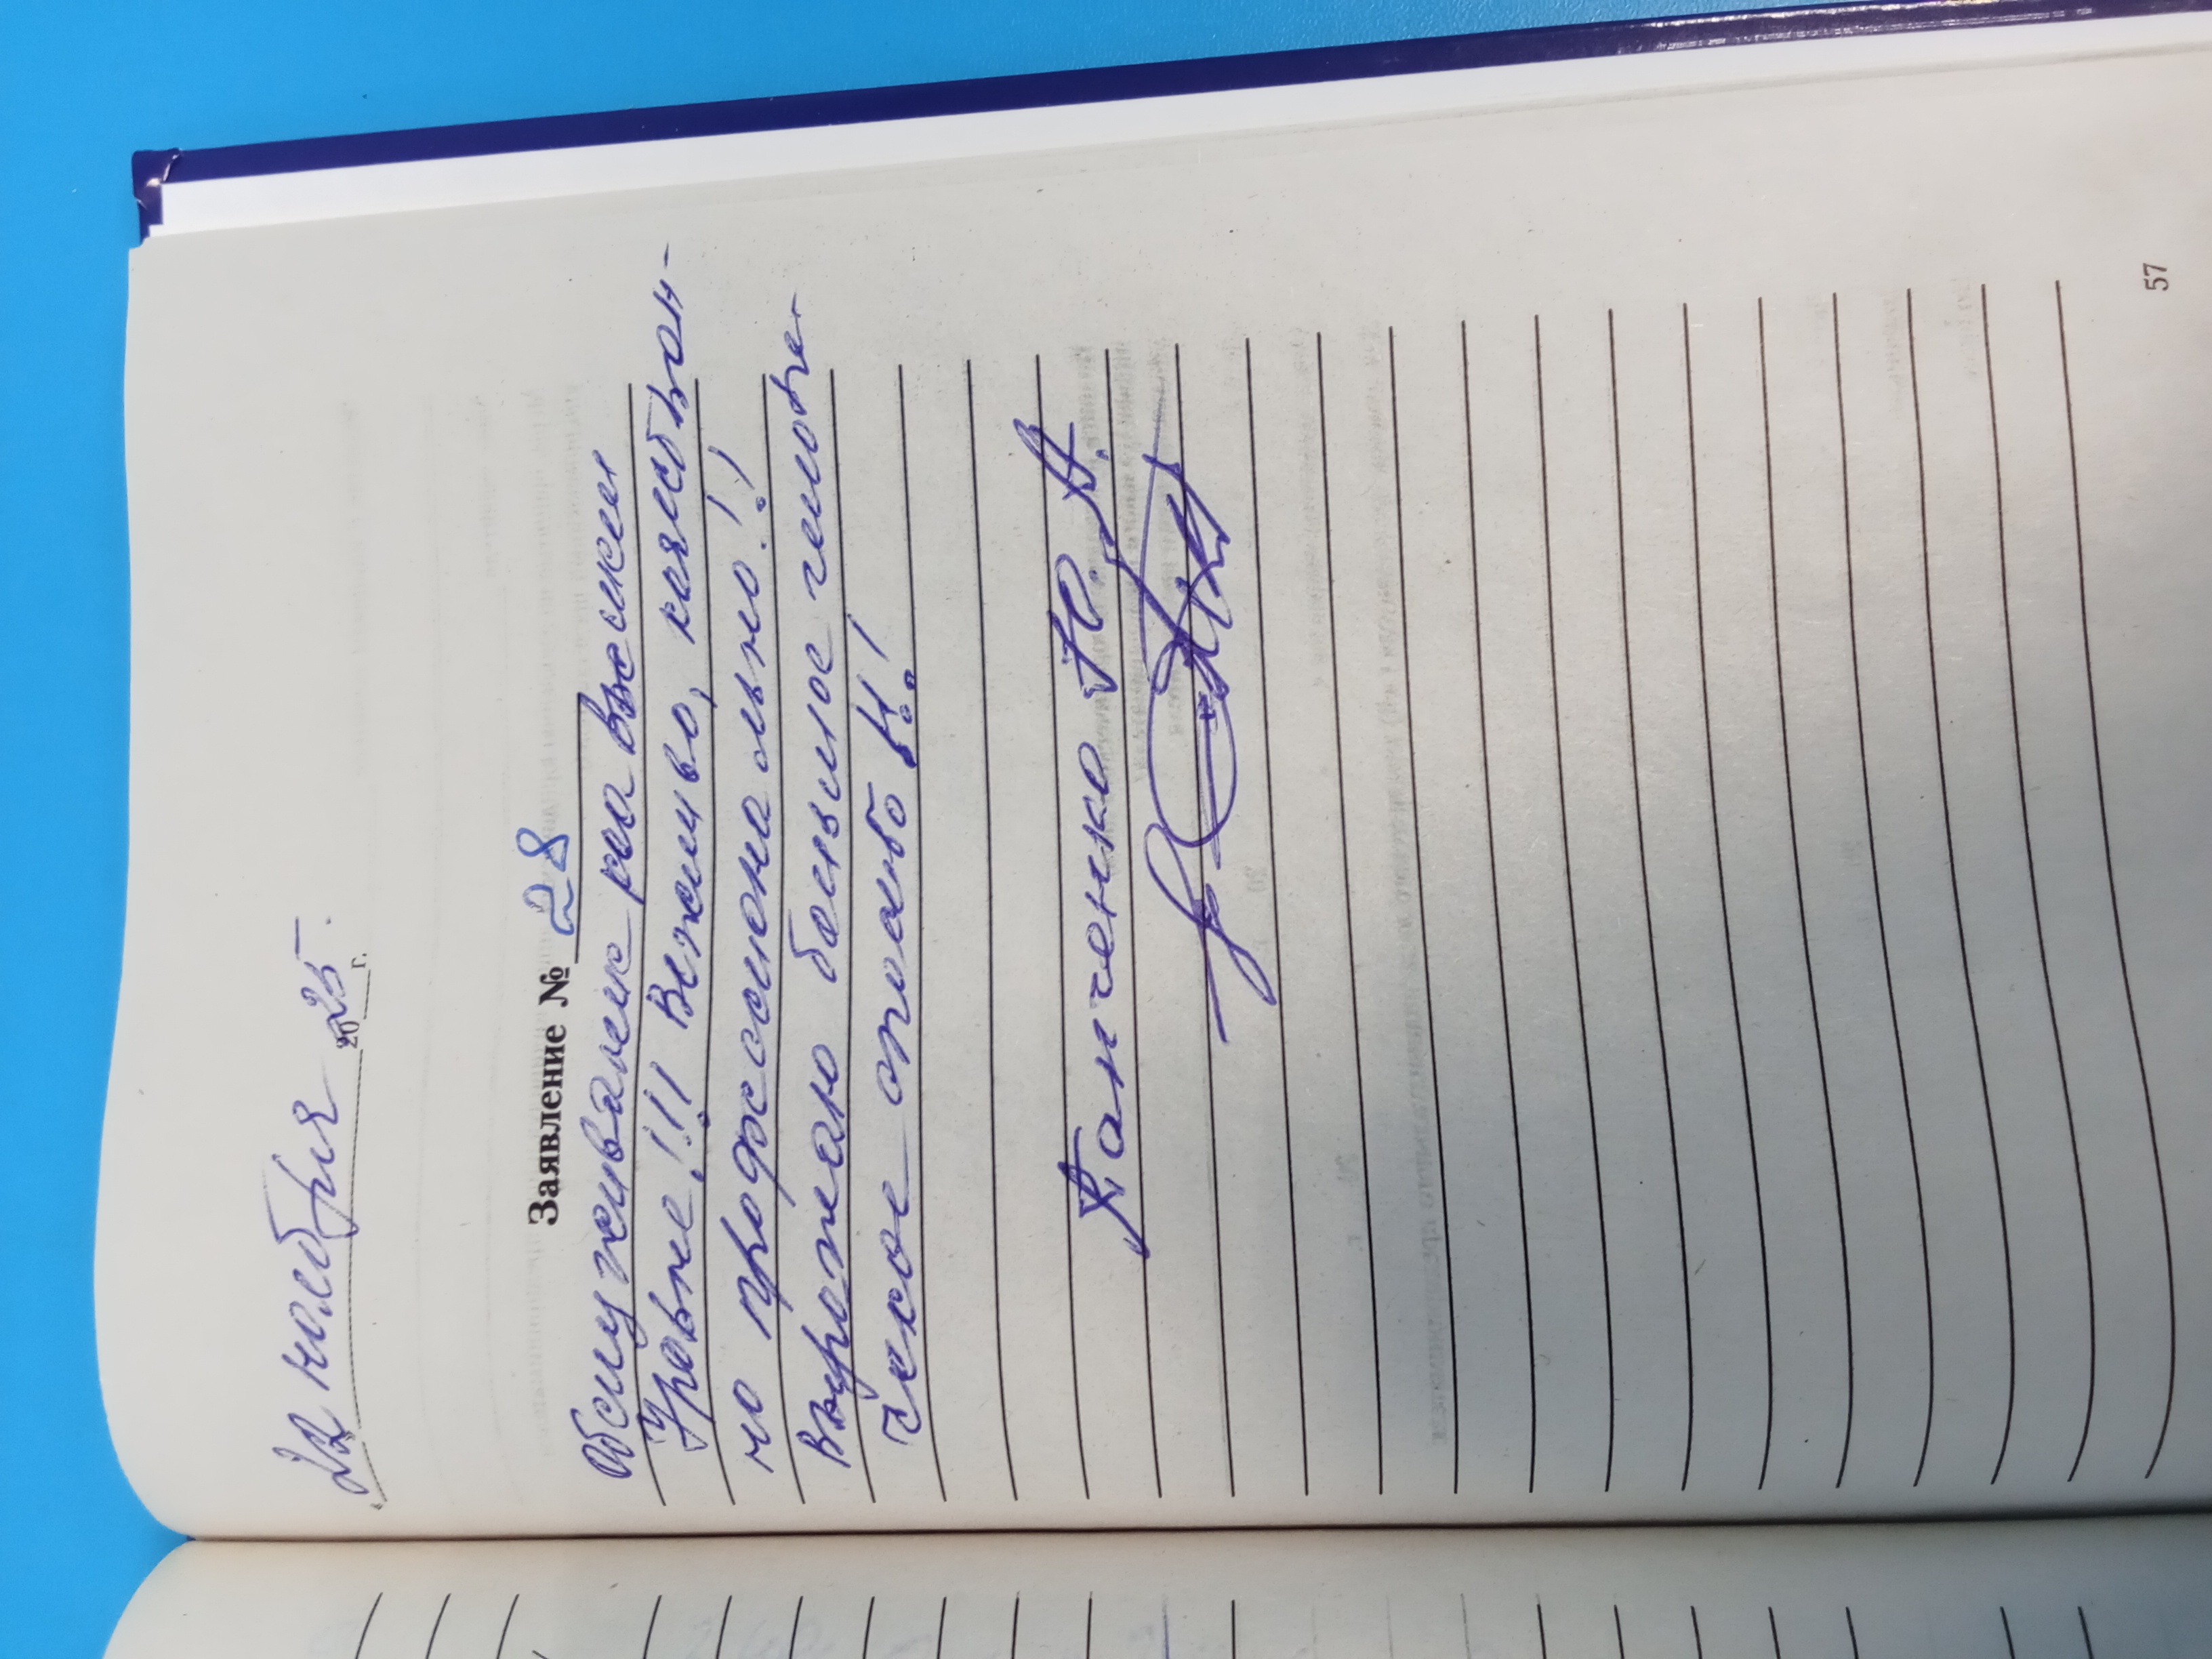 22 ноября 2025 г.
Заявление № 28
Обслуживание на высшем
Уровне!!! Вежливо, качествен-
но профессионально!!
Выражаю большое челове-
ческое спасибо!!
Панченко Н. А.
57